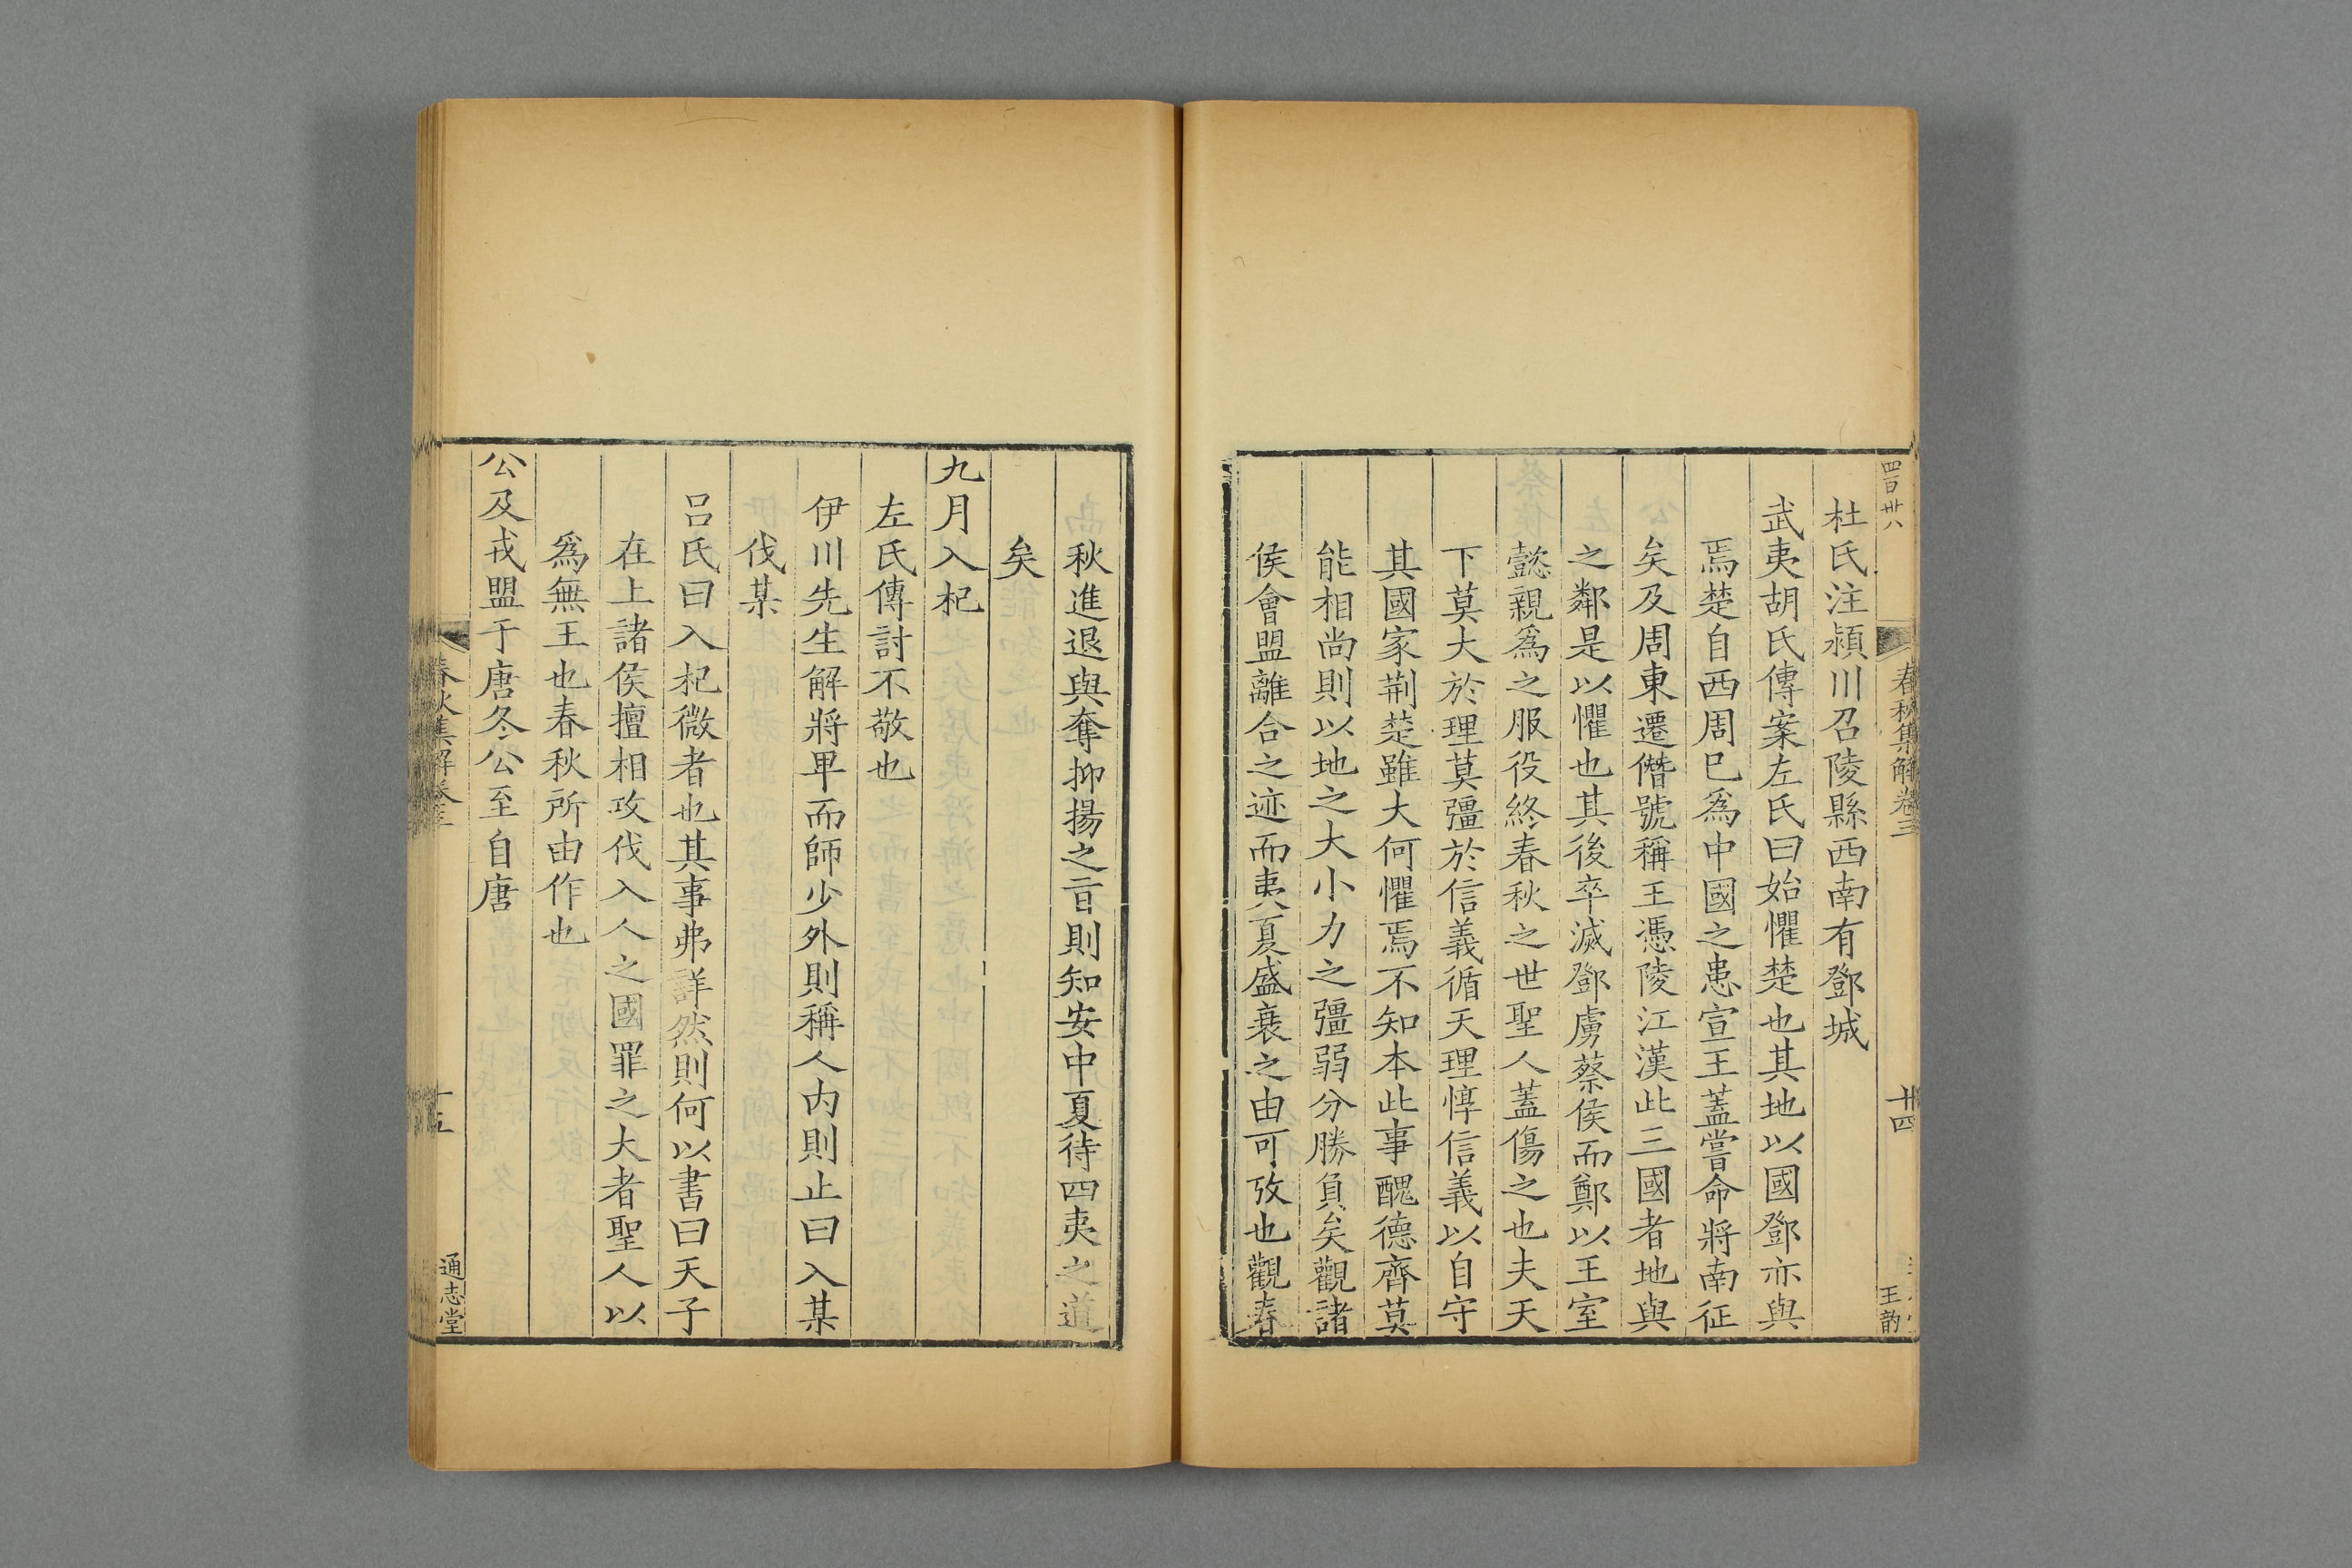 四百卅八
春秋集解卷三
十四
王韵
杜氏注潁川召陵縣西南有鄧城
武夷胡氏傳案左氏曰始懼楚也其地以國鄧亦與
焉楚自西周已爲中國之患宣王蓋嘗命將南征
矣及周東遷僭號稱王憑陵江漢此三國者地與
之鄰是以懼也其後卒滅鄧虜蔡侯而鄭以王室
懿親爲之服役終春秋之世聖人蓋傷之也夫天
下莫大於理莫彊於信義循天理惇信義以自守
其國家荆楚雖大何懼焉不知本此事醜德齊莫
能相尚則以地之大小力之彊弱分勝負矣觀諸
侯會盟離合之迹而夷夏盛衰之由可攷也觀春
秋進退與奪抑揚之㫖則知安中夏待四夷之道
矣
九月入杞
左氏傳討不敬也
伊川先生解將卑而師少外則稱人内則止曰入某
伐某
呂氏曰入杞微者也其事弗詳然則何以書曰天子
在上諸侯擅相攻伐入人之國罪之大者聖人以
爲無王也春秋所由作也
公及戎盟于唐冬公至自唐
春秋集解卷三
十五
通志堂